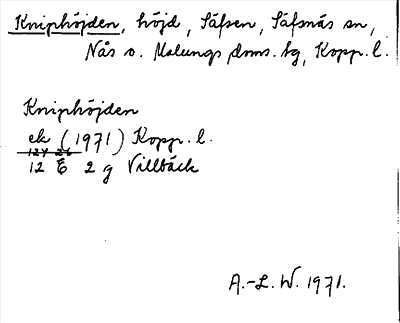 Kniphöjden, höjd, Säfsen, Säfsnäs sn,
Nås o. Malungs doms. hg, Kopp. l.
Kniphöjden
ek (1971) Kopp. l.
12 E 2 g Villbäck
A.-L. W. 1971.